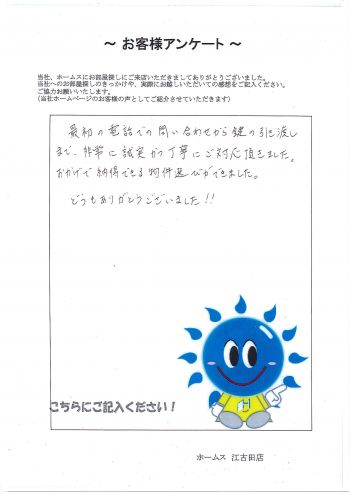 ～ お客様アンケート ～
当社、ホームスにお部屋探しにご来店いただきましてありがとうございました。
当社へのお部屋探しのきっかけや、実際にお越しいただいての感想をご記入ください。
ご協力お願いいたします。
(当社ホームページのお客様の声としてご紹介させていただきます)
最初の電話での問い合わせから鍵の引き渡し
まで、非常に誠実かつ丁寧にご対応頂きました。
おかげで納得できる物件選びができました。
どうもありがとうございました!!
H
こちらにご記入ください!
ホームス 江古田店